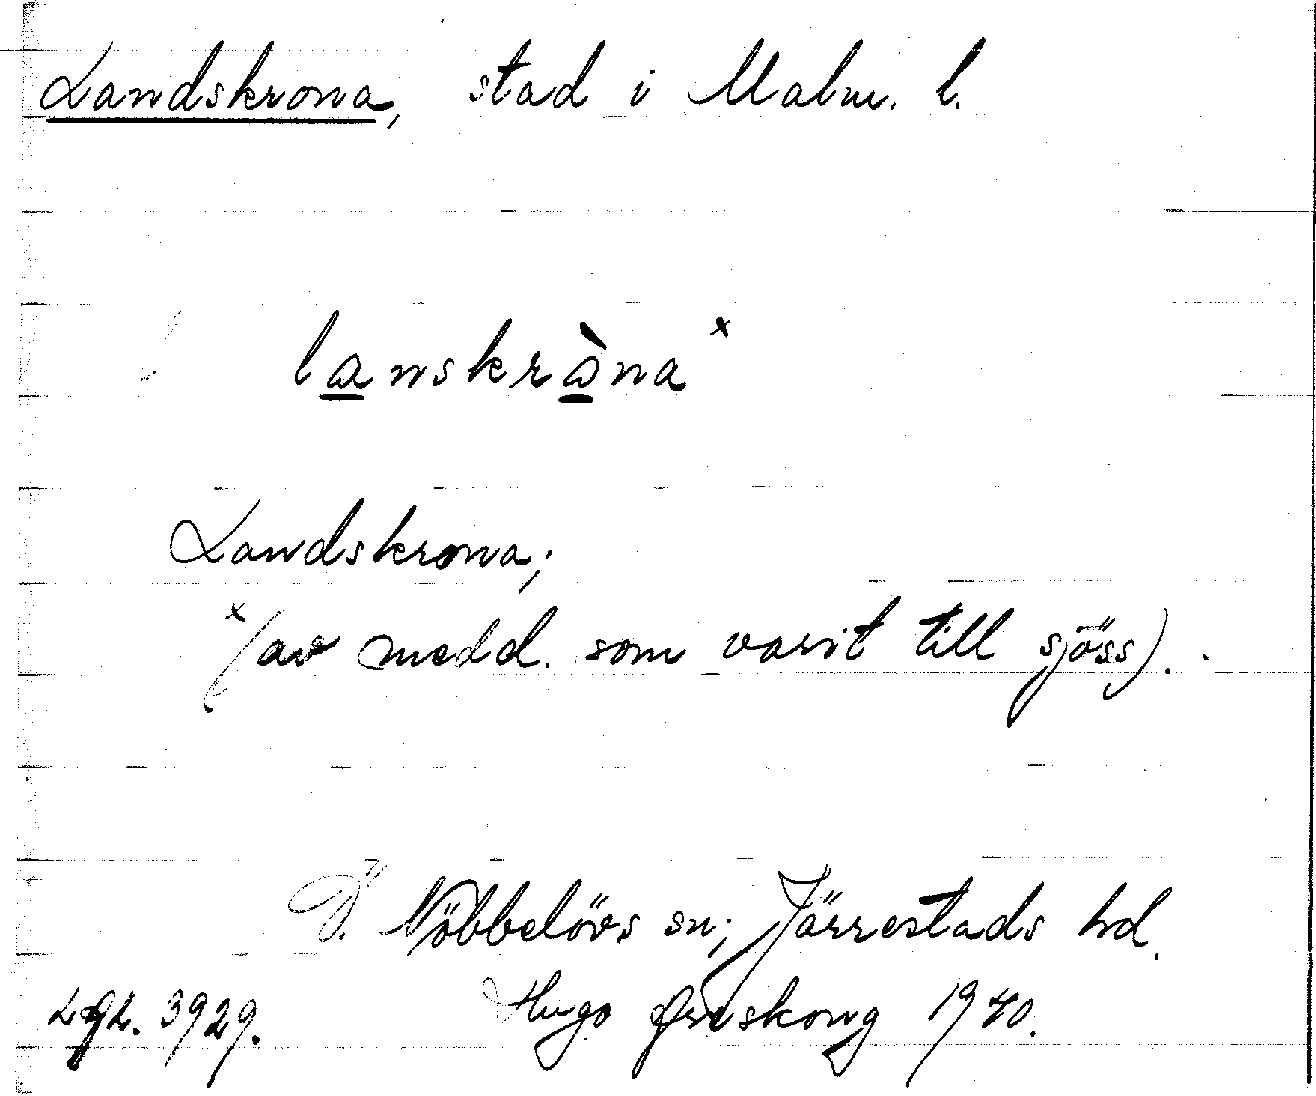 Landskrona, stad i Malm. l.
lanskràna x
Landskrona;
x (av medd. som varit till sjöss).
Ö. Nöbbelövs sn; Järrestads hd.
3929. Hugo 1940.